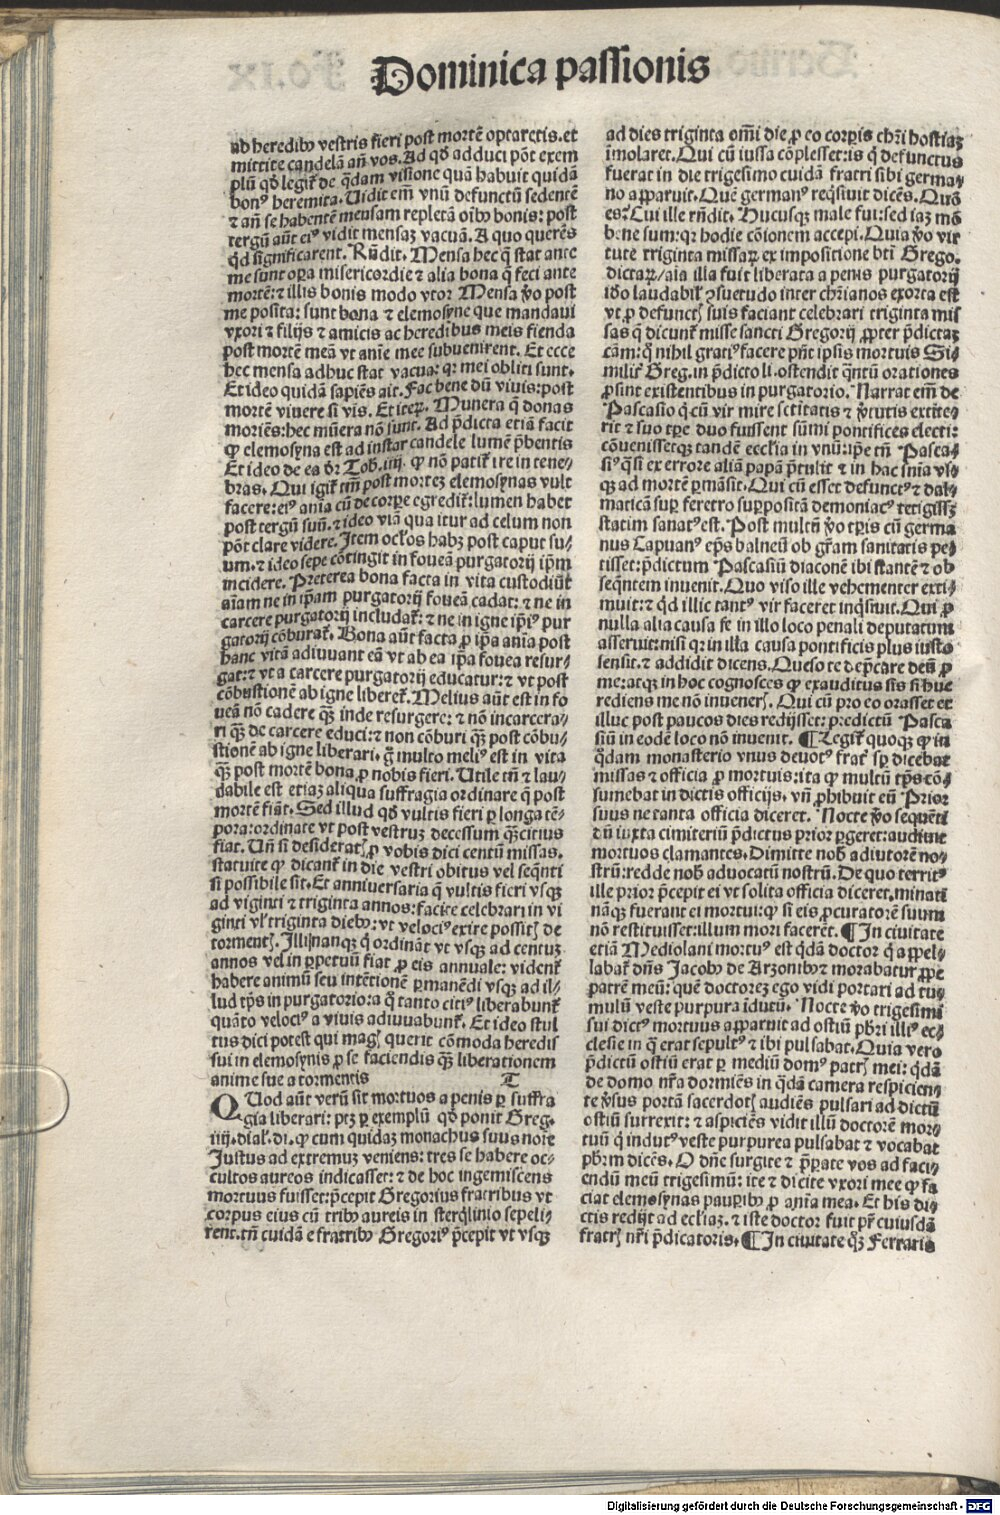 Dominica passionis
ab heredibꝰ vestris fieri post mortē optaretis. et
mittite candelā añ vos. Ad qđ adduci pōt exem
plū qđ legit̃ de q̄dam visione quā habuit quidā
bonꝰ heremita. Uidit em̄ vnū defunctū sedentē
⁊ añ se habentē mensam repletā oībꝰ bonis: post
tergū aūt eiꝰ vidit mensaz vacuā. A quo querēs
qđ significarent. Rn̄dit. Mensa hec q̄ stat ante
me sunt oꝑa misericordie ⁊ alia bona q̄ feci ante
mortē: ⁊ illis bonis modo vtor Mensa ꝟo post
me posita: sunt bona ⁊ elemosyne que mandaui
vxori ⁊ filijs ⁊ amicis ac heredibus meis fienda
post mortē meā vt anīe mee subuenirent. Et ecce
hec mensa adhuc stat vacua: qꝛ mei obliti sunt.
Et ideo quidā sapiēs ait. Fac bene dū viuis: post
mortē viuere si vis. Et iteꝝ. Munera q̄ donas
moriēs: hec mūera nō sunt. Ad p̄dicta etiā facit
ꝙ elemosyna est ad instar candele lumē p̄bentis
Et ideo de ea dr̄ Tob. iiij. ꝙ nō patit̃ ire in tene⸗
bras. Qui igit̃ tm̄ post mortez elemosynas vult
facere: eiꝰ anīa cū de corꝑe egredit̃: lumen habet
post tergū suū. ⁊ ideo viā qua itur ad celum non
pōt clare videre. Item ocl̄os habꝫ post caput su⸗
um. ⁊ ideo sepe cōtingit in foueā purgatorij ip̄m
incidere. Preterea bona facta in vita custodiūt
aīam ne in ip̄am purgatorij foueā cadat: ⁊ ne in
carcere purgatorij includat̃: ⁊ ne in igne ip̄iꝰ pur
gatorij cōburat̃. Bona aūt facta ꝓ ip̄a anīa post
hanc vitā adiuuant eā vt ab ea ip̄a fouea resur⸗
gat: ⁊ vt a carcere purgatorij educatur: ⁊ vt post
cōbustionē ab igne liberet̃. Melius aūt est in fo
ueā nō cadere qꝫ̄ inde resurgere: ⁊ nō incarcera⸗
ri qꝫ̄ de carcere educi: ⁊ non cōburi qꝫ̄ post cōbu⸗
stionē ab igne liberari. g̊ multo meliꝰ est in vita
qꝫ̄ post mortē bona ꝓ nobis fieri. Utile tn̄ ⁊ lau⸗
dabile est etiaz aliqua suffragia ordinare q̄ post
mortē fiāt. Sed illud qđ vultis fieri ꝑ longa tē⸗
pora: ordinate vt post vestruz decessum qꝫ̄citius
fiat. Uñ si desideratꝭ ꝓ vobis dici centū missas.
statuite ꝙ dicant̃ in die vestri obitus vel seq̄nti
si possibile sit. Et anniuersaria q̄ vultis fieri vsqꝫ
ad viginti ⁊ triginta annos: facite celebrari in vi
ginti vl̄ triginta diebꝰ: vt velociꝰ exire possitꝭ de
tormentꝭ. Illi nanqꝫ q̇ ordināt vt vsqꝫ ad centuz
annos vel in ꝑpetuū fiat ꝓ eis annuale: vident̃
habere animū seu intētionē ꝑmanēdi vsqꝫ ad il⸗
lud tp̄s in purgatorio: a q̊ tanto citiꝰ liberabunt̃
quāto velociꝰ a viuis adiuuabunt̃. Et ideo stul
tus dici potest qui magꝭ querit cōmoda heredis
sui in elemosynis ꝓ se faciendis qꝫ̄ liberationem
anime sue a tormentis T
QUod aūt verū sit mortuos a penis ꝑ suffra
gia liberari: ptꝫ ꝑ exemplū qđ ponit Greg.
iiij. dial. di. ꝙ cum quidaz monachus suus noīe
Justus ad extremuz veniens: tres se habere oc⸗
cultos aureos indicasset: ⁊ de hoc ingemiscens
mortuus fuisset: p̄cepit Gregorius fratribus vt
corpus eius cū tribꝰ aureis in sterq̇linio sepeli⸗
rent. tn̄ cuidā e fratribꝰ Gregoriꝰ p̄cepit vt vsqꝫ
ad dies triginta om̄i die ꝓ eo corꝑis chr̄i hostiaz
īmolaret. Qui cū iussa cōplesset: is q̇ defunctus
fuerat in die trigesimo cuidā fratri sibi germa⸗
no apparuit. Quē germanꝰ req̇siuit dicēs. Quō
es? Cui ille rn̄dit. Hucusqꝫ male fui: sed iaz mō
bene sum: qꝛ hodie cōionem accepi. Quia ꝟo vir
tute triginta missaꝝ ex impositione bt̄i Grego.
dictaꝝ / aīa illa fuit liberata a penis purgatorij
iđo laudabil̓ ꝯsuetudo inter chr̄ianos exorta est
vt ꝓ defunctꝭ suis faciant celebrari triginta mis
sas q̄ dicunt̃ misse sancti Gregorij ꝓpter p̄dictaz
cām: q̄ nihil gratiꝰ facere pn̄t ipsis mortuis Si⸗
milit̃ Greg. in p̄dicto li. ostendit q̄ntū orationes
ꝓsint existentibus in purgatorio. Narrat em̄ de
Pascasio q̇ cū vir mire sctītatis ⁊ ꝟtutis extite⸗
rit ⁊ suo tꝑe duo fuissent sūmi pontifices electi:
cōuenissetqꝫ tandē eccl̄ia in vnū: ip̄e tn̄ Pasca⸗
siꝰ q̄si ex errore aliā papā p̄tulit ⁊ in hac sn̄ia vs⸗
qꝫ ad mortē ꝑmāsit. Qui cū esset defunctꝰ ⁊ dal⸗
maticā suꝑ feretro suꝑpositā demoniacꝰ tetigissꝫ
statim sanatꝰ est. Post multū ꝟo tꝑis cū germa
nus Capuanꝰ ep̄s balneū ob gr̄am sanitatis pe⸗
tisset: p̄dictum Pascasiū diaconē ibi stantē ⁊ ob
seq̄ntem inuenit. Quo viso ille vehementer exti⸗
muit: ⁊ qđ illic tantꝰ vir faceret inq̇siuit. Qui ꝓ
nulla alia causa se in illo loco penali deputatum
asseruit: nisi qꝛ in illa causa pontificis plus iusto
sensit. ⁊ addidit dicens. Queso te dep̄care deū ꝓ
me: atqꝫ in hoc cognosces ꝙ exauditus sis si huc
rediens me nō inuenerꝭ. Qui cū pro eo orasset et
illuc post paucos dies redijsset: predictū Pasca
siū in eodē loco nō inuenit. ¶ Legit̃ quoqꝫ ꝙ in
q̊dam monasterio vnus deuotꝰ frat̃ sꝑ dicebat
missas ⁊ officia ꝓ mortuis: ita ꝙ multū tp̄s cō⸗
sumebat in dictis officijs. vñ ꝓhibuit eū Prior
suus ne tanta officia diceret. Nocte ꝟo sequēti
dū iuxta cimiteriū p̄dictus prior ꝑgeret: audiuit
mortuos clamantes. Dimitte nob̄ adiutorē no⸗
strū: redde nob̄ aduocatū nostrū. De quo territꝰ
ille prior p̄cepit ei vt solita officia diceret. minati
nāqꝫ fuerant ei mortui: ꝙ si eis ꝓcuratorē suum
nō restituisset: illum mori facerēt. ¶ In ciuitate
etiā Mediolani mortuꝰ est q̇dā doctor q̇ appel⸗
labat̃ dn̄s Jacobꝰ de Arzonibꝰ ⁊ morabatur ꝓpe
patrē meū: quē doctorez ego vidi portari ad tu⸗
mulū veste purpura īdutū. Nocte ꝟo trigesimi
sui dictꝰ mortuus apparuit ad ostiū pb̄ri illiꝰ ec⸗
clesie in q̄ erat sepultꝰ ⁊ ibi pulsabat. Quia vero
p̄dictū ostiū erat ꝑ mediū domꝰ patrꝭ mei: q̇dā
de domo nr̄a dormiēs in q̄dā camera respicien⸗
te ꝟsus portā sacerdotꝭ audiēs pulsari ad dictū
ostiū surrexit: ⁊ aspiciēs vidit illū doctorē mor⸗
tuū q̇ indutꝰ veste purpurea pulsabat ⁊ vocabat
pb̄rm dicēs. O dn̄e surgite ⁊ p̄ꝑate vos ad faci⸗
endū meū trigesimū: ite ⁊ dicite vxori mee ꝙ fa
ciat elemosynas pauꝑibꝰ ꝓ anīa mea. Et his di⸗
ctis redijt ad eccl̄iaz. ⁊ iste doctor fuit pr̄ cuiusdā
fratrꝭ nr̄i p̄dicatoris. ¶ In ciuitate q̊qꝫ Ferraris
Digitalisierung gefördert durch die Deutsche Forschungsgemeinschaft - DFG